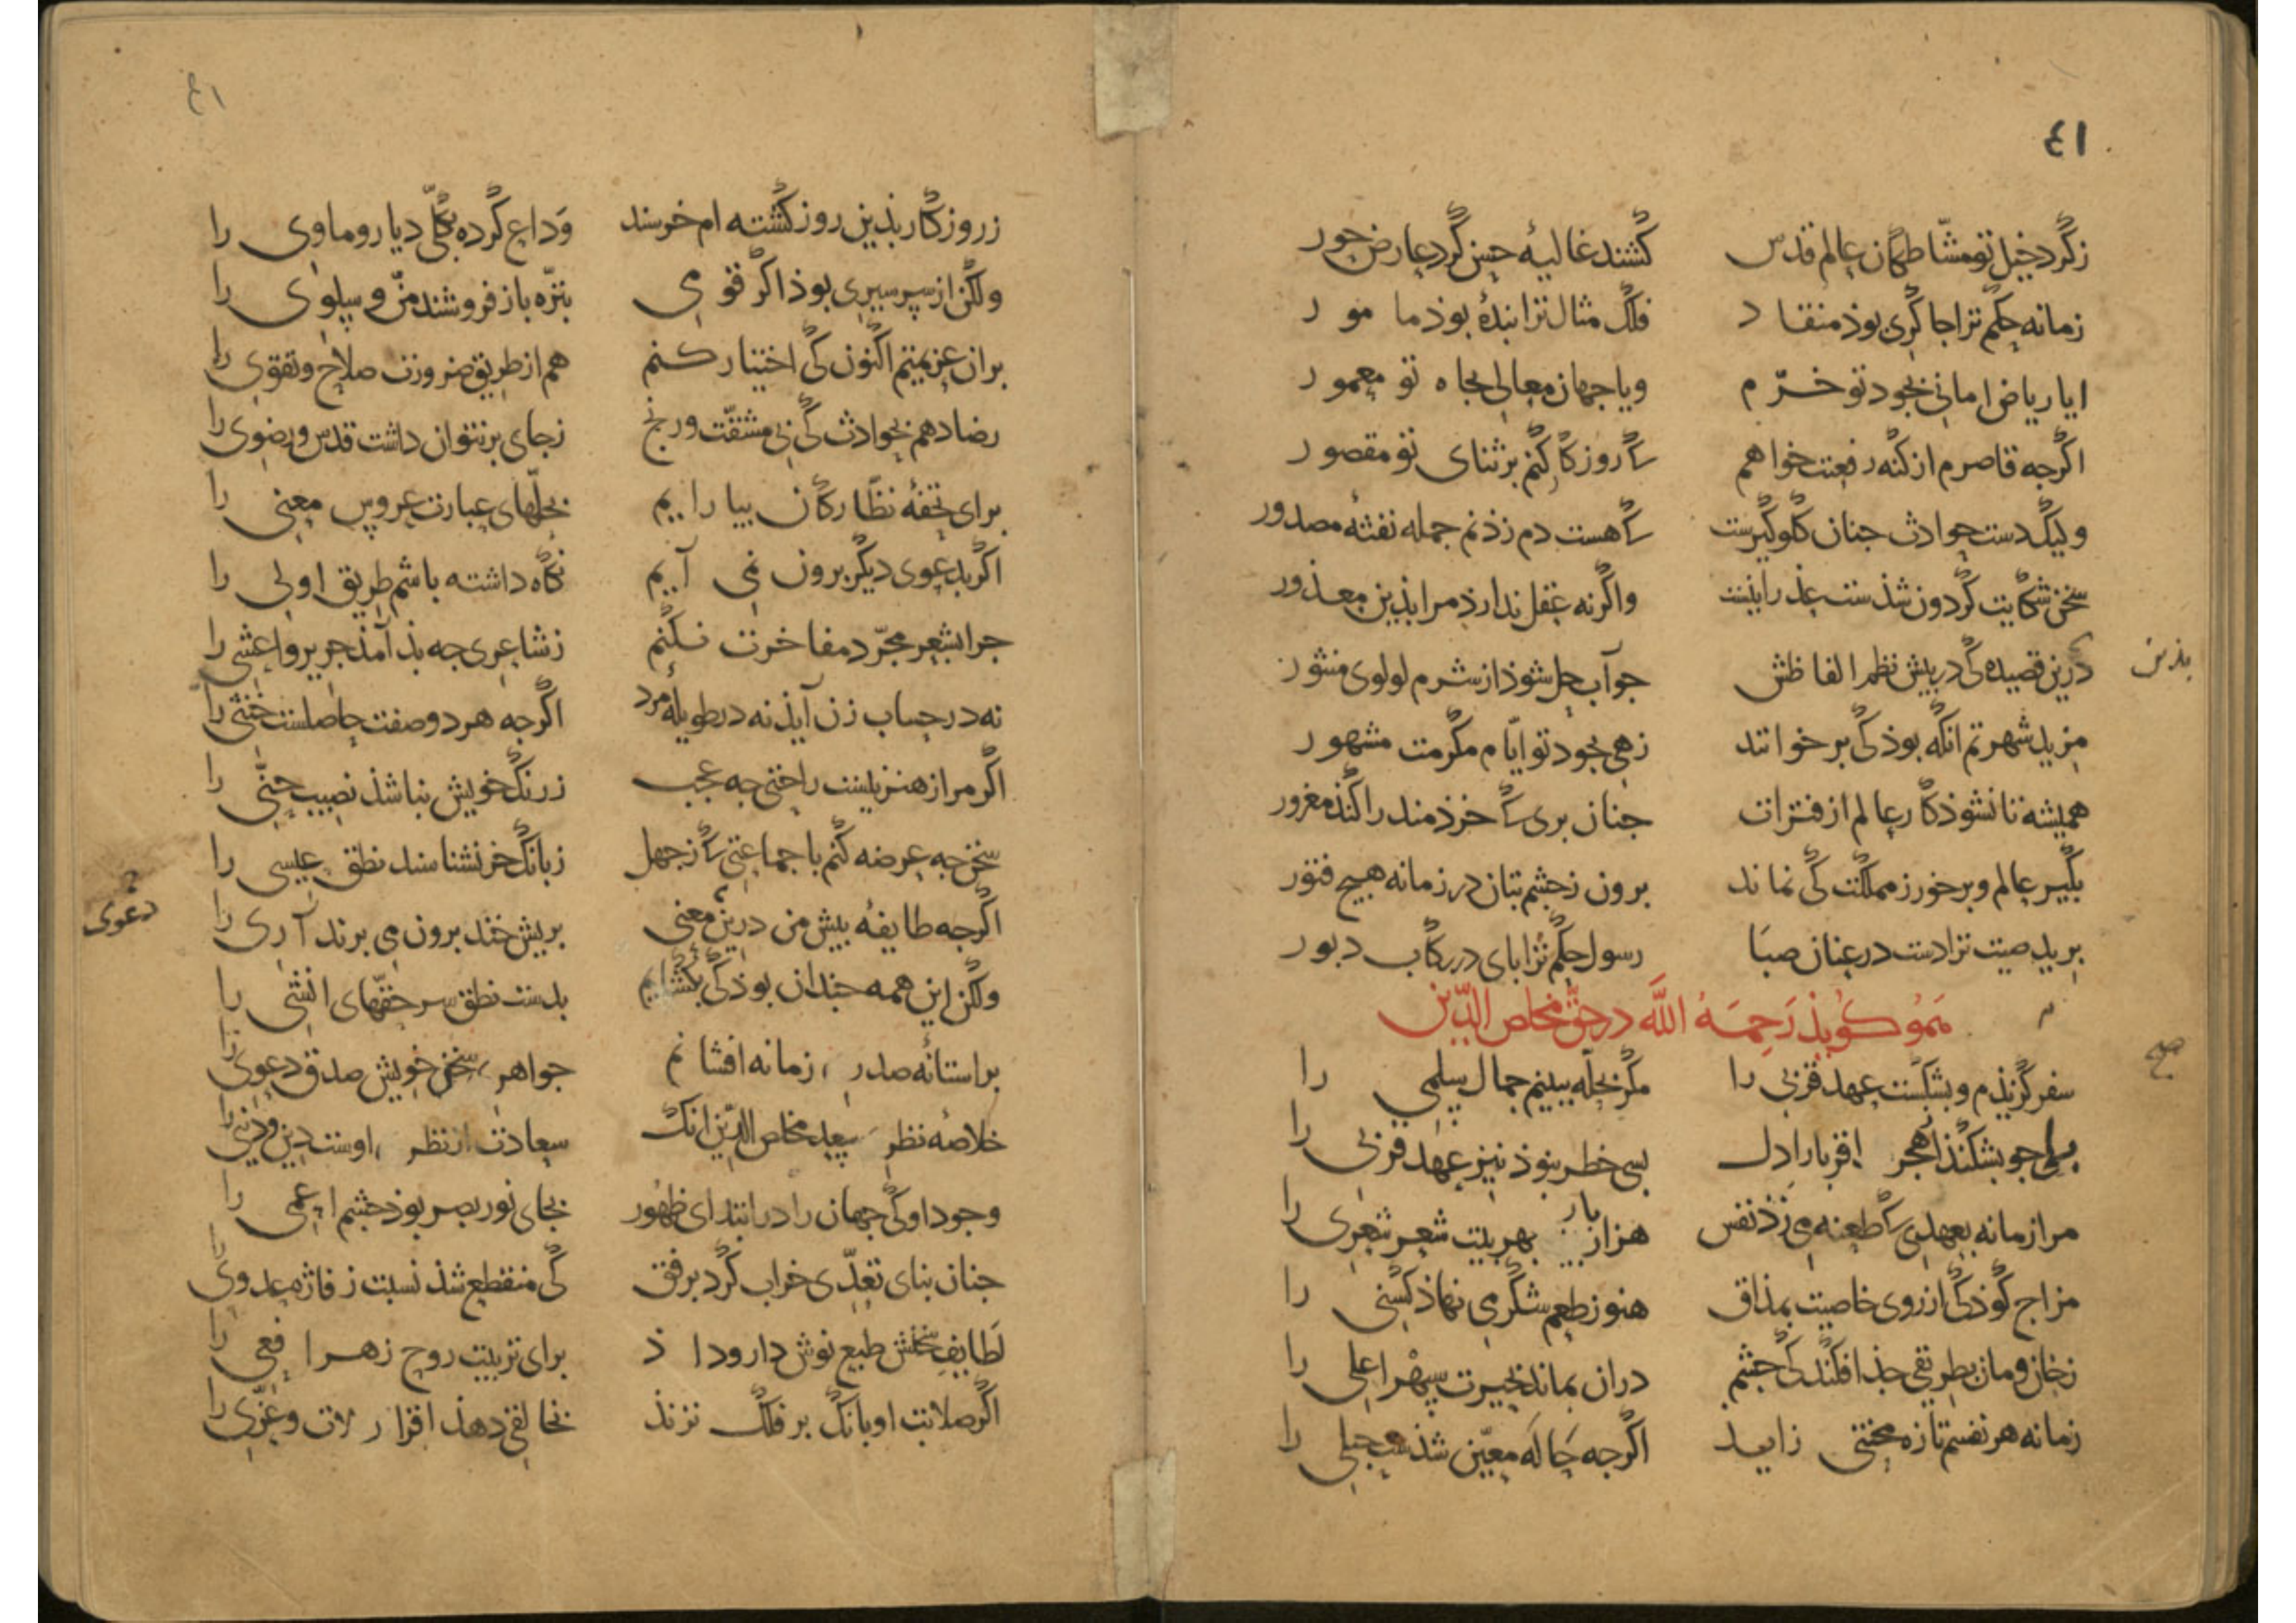 ٤١
زگرد خیل تو مشّاطگان عالم قدس کشند غالیهٔ حسن گرد عارض حور
زمانه حکم ترا جاکری بوذ منقاد فلک مثال ترا بندهٔ بوذ مامور
ایا ریاض امانی بجود تو خرّم ویا جهان معالی بجاه تو معمور
اگرجه قاصرم از کنه رفعتت خواهم کی روزکار کنم بر ثنای تو مقصور
ولیک دست حوادث جنان گلوگیرست کی هست دم زدنم جمله نفثهٔ مصدور
سخن شکایت گردون شذست عذرا نیست واگرنه عقل ندارذ مرا بذین معذور
درین قصیده کی در بیش نظم الفاظش جو آب حل شوذ از شرم لولوی منثور
بذین
مزید شهرتم انگه بوذ کی بر خوانند زهی بجود تو ایّام مکرمت مشهور
همیشه تا نشوذ کار عالم از فترات جنان بری کی خرذمند را کند مغرور
بگیر عالم و برخور ز مملکت کی نماند برون ز جشم بتان در زمانه هیج فتور
برید صیت ترا دست در عنان صبا رسول حکم ترا بای در رکاب دبور
هَمو کویذ رَحِمَهُ اللَّه در حقّ مخلص الدّین
صح
سفر گزیذم و بشکست عهد قربی را مگر بحلّه ببینم جمال سلمی را
بلی جو بشکنذ از هجر اقربا را دل بسی خطر نبوذ نیز عهد قربی را
مرا زمانه بعهدی کی طعنه می زذ نفس هزار بار بهر بیت شعر شعری را
مزاج کوذکی از روی خاصیت بمذاق هنوز طعم شکر می نهاذ کسنی را
ز خان و مان بطریقی جذا فکند کی جشم دران بماند بحیرت سپهر اعلی را
زمانه هر نفسم تازه محنتی زاید اگرجه حاله معیّن شذست حبلی را
٤١
ز روزکار بذین روز کشته ام خرسند وَداع کرده بکلّی دیار و ماوی را
ولکن از سر سیری بوذ اگر قومی بترّه باز فروشند منّ و سلوی را
بران عزیمتم اکنون کی اختیار کنم هم از طریق ضرورت صلاح و تقوی را
رضا دهم بحوادث کی بی مشقّت و رنج ز جای بر نتوان داشت قدس و رضوی را
برای تحفهٔ نظّارکان بیارایم بحلّهای عبارت عروس معنی را
اگر بدعوی دیگر برون نمی آیم نگاه داشته باشم طریق اولی را
جرا بشعر مجرّد مفاخرت نکنم ز شاعری جه بذ آمذ جریر و اعشی را
نه در حساب زن آیذ نه در طویلهٔ مرد اگرجه هر دو صفت حاصلست خنثی را
اگر مرا ز هنر نیست راحتی جه عجب ز رنگ خویش نباشذ نصیب حنّی را
سخن جه عرضه کنم با جماعتی کی ز جهل ز بانگ خر نشناسند نطق عیسی را
اگرجه طایفهٔ بیش من درین معنی بریش خند برون می برند آری را
دعوی
ولکن این همه جندان بوذ کی بگشایم بدست نطق سر حقّهای انشی را
بر استانهٔ صدر زمانه افشانم جواهر سخن خویش صدق دعوی را
خلاصهٔ نظر سعد مخلص الدّین انک سعادت از نظر اوست دین و دنیی را
وجود او کی جهان را در ابتدای ظهور بجای نور بصر بوذ جشم اعمی را
جنان بنای تعدّی خراب کرد برفق کی منقطع شذ نسبت ز فاژه عدوی را
لَطایفِ سخنش طبع نوش دارو داذ برای تربیت روح زهر افعی را
اگر صلابت او بانگ بر فلک نزنذ بخالقی دهذ اقرار لات و عزّی را